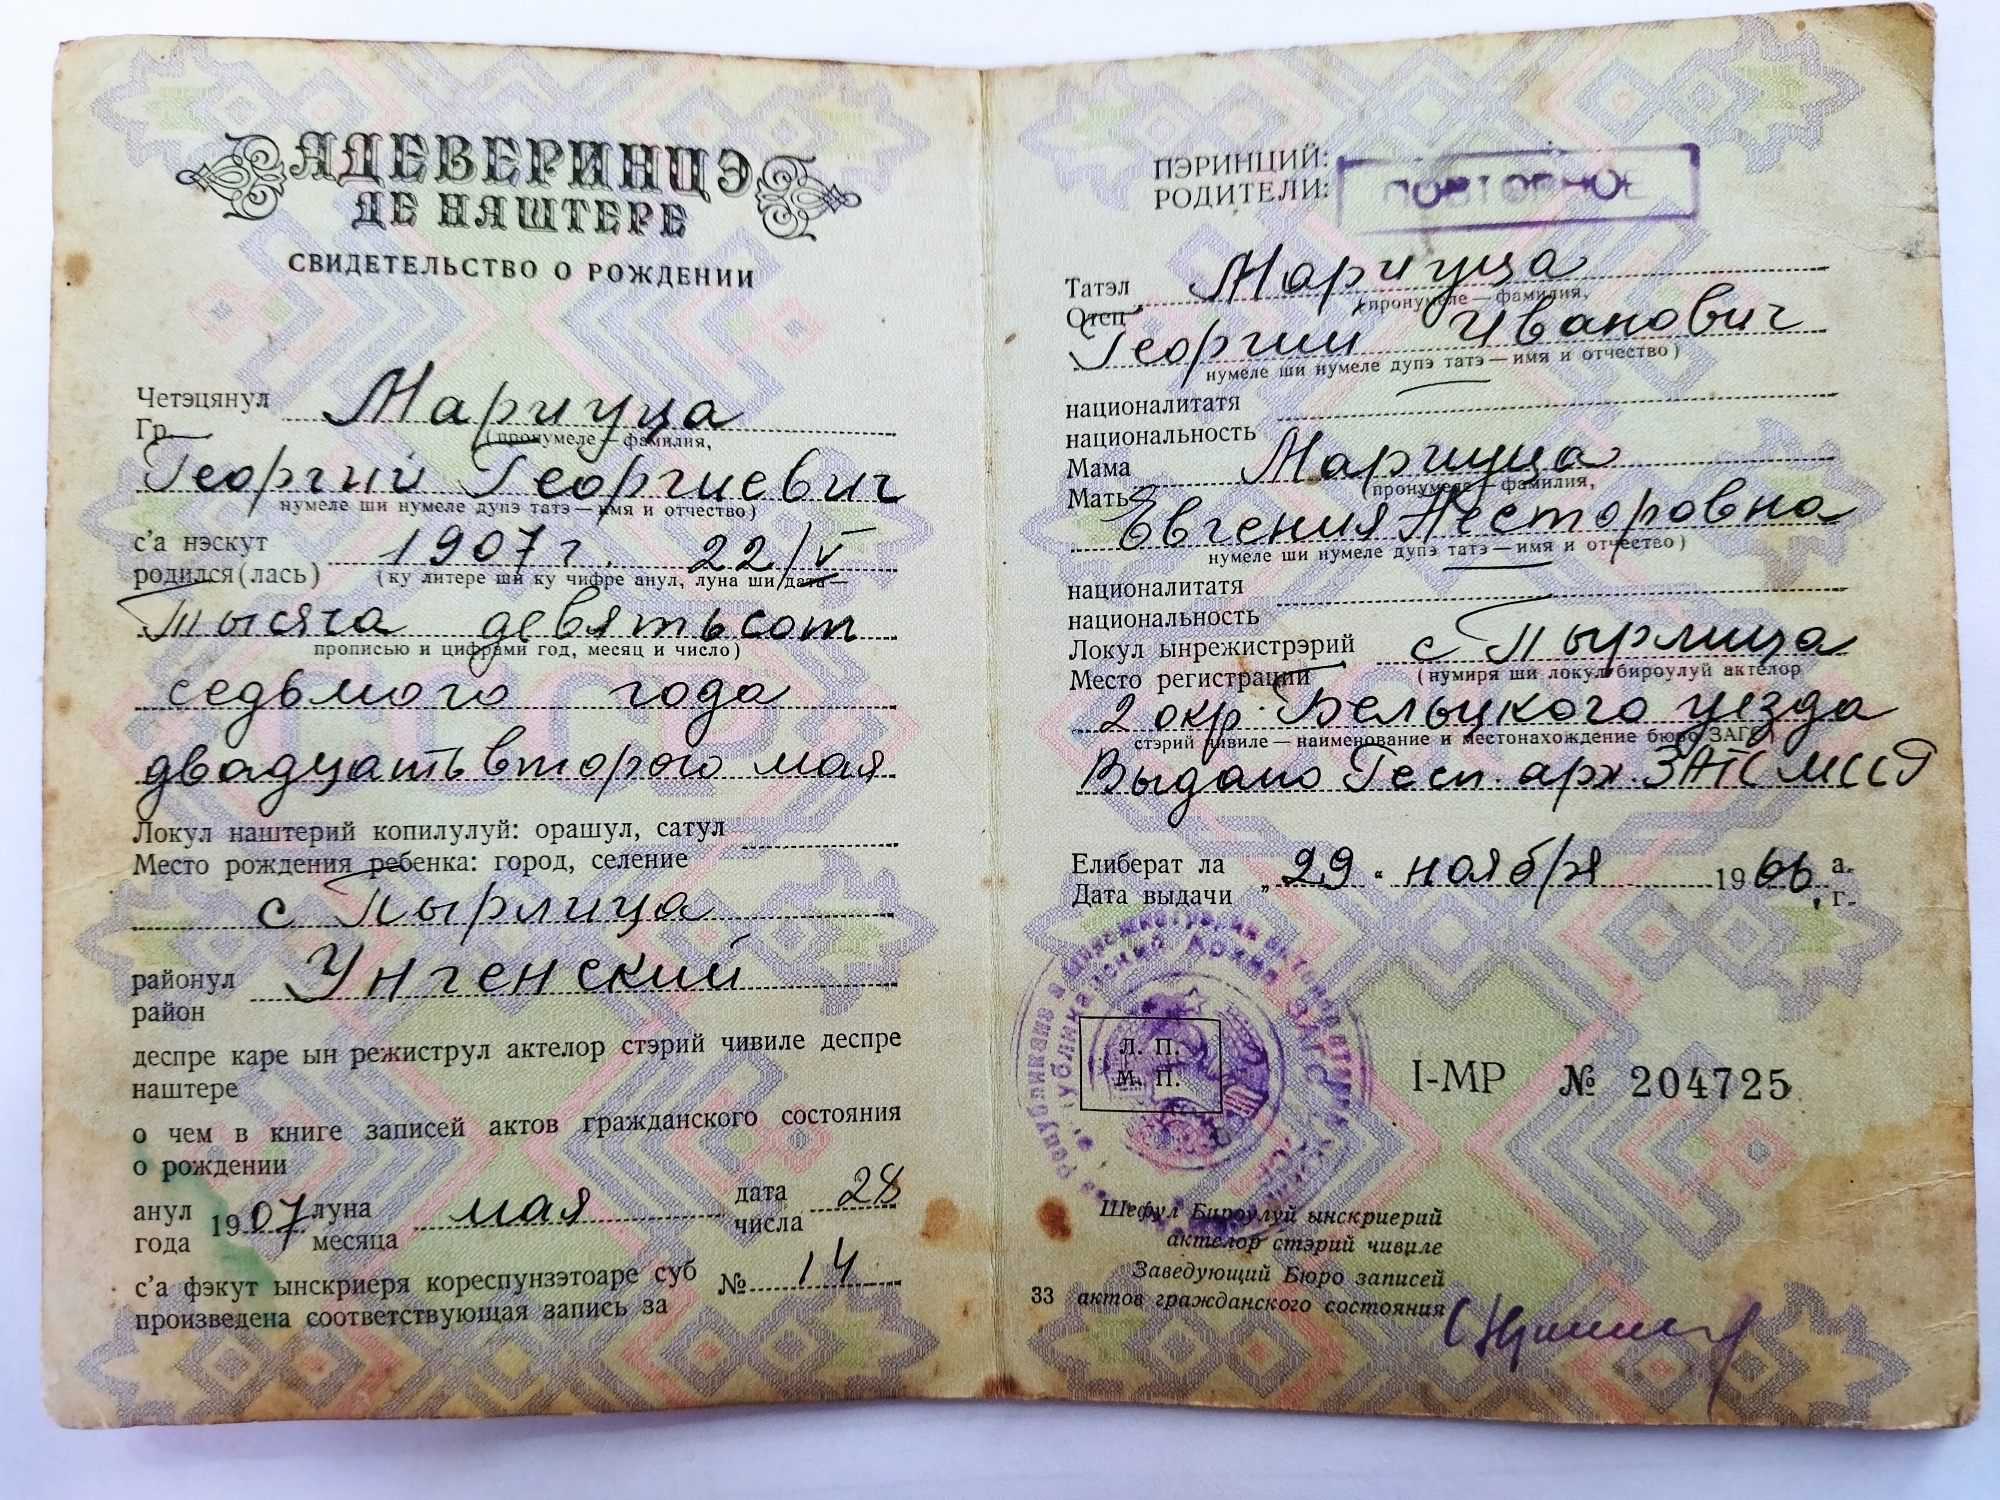 АДЕВЕРИНЦЭ
ДЕ НАШТЕРЕ
СВИДЕТЕЛЬСТВО О РОЖДЕНИИ
Четэцянул
Гр. Мариуца
(пронумеле — фамилия,
Георгий Георгиевич
нумеле ши нумеле дупэ татэ — имя и отчество)
с'а нэскут
родился(лась) 1907 г. 22/V
(ку литере ши ку чифре анул, луна ши дата —
Тысяча девятьсот
прописью и цифрами год, месяц и число)
седьмого года
двадцать второго мая
Локул наштерий копилулуй: орашул, сатул
Место рождения ребенка: город, селение
с Пырлица
районул Унгенский
район
деспре каре ын режиструл актелор стэрий чивиле деспре
наштере
о чем в книге записей актов гражданского состояния
о рождении
анул 1907 луна мая дата 28
года месяца числа
с'а фэкут ынскриеря кореспунзэтоаре суб № 14
произведена соответствующая запись за
ПЭРИНЦИЙ:
РОДИТЕЛИ:
ПОВТОРНОЕ
Татэл Мариуца
Отец (пронумеле — фамилия,
Георгий Иванович
нумеле ши нумеле дупэ татэ — имя и отчество)
националитатя
национальность
Мама Мариуца
Мать (пронумеле — фамилия,
Евгения Несторовна
нумеле ши нумеле дупэ татэ — имя и отчество)
националитатя
национальность
Локул ынрежистрэрий с Пырлица
Место регистрации (нумиря ши локул бироулуй актелор
2 окр. Бельцкого уезда
стэрий чивиле — наименование и местонахождение бюро ЗАГС)
Выдано Респ. арх. ЗАГС МССР
Елиберат ла
Дата выдачи „29" ноября 1966 а.
г.
Л. П.
М. П.
I-МР № 204725
Шефул Бироулуй ынскриерий
актелор стэрий чивиле
Заведующий Бюро записей
33 актов гражданского состояния